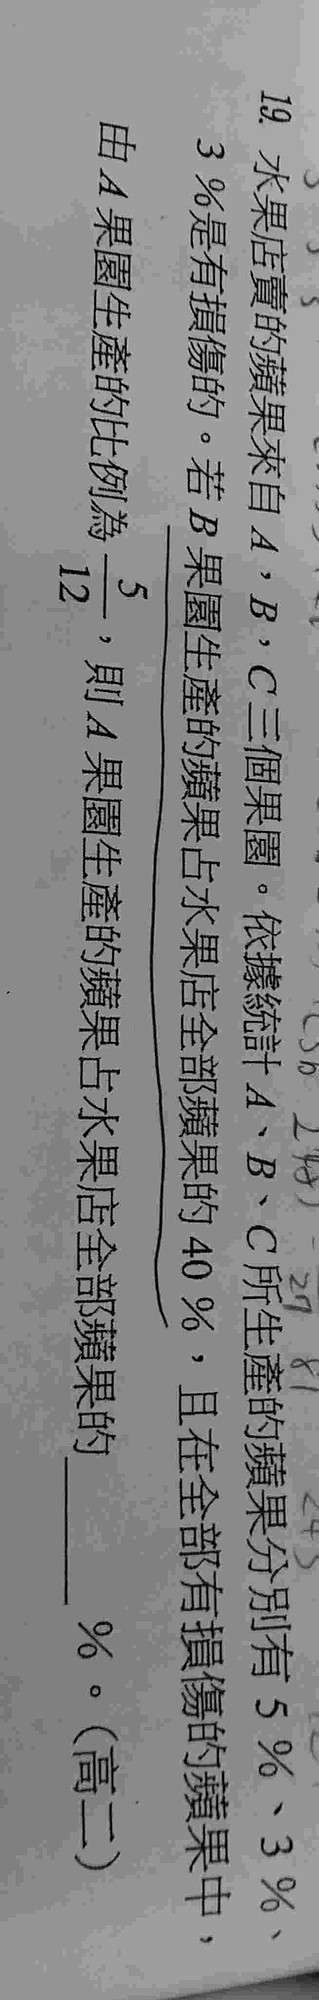 19. 水果店賣的蘋果來自 A，B，C 三個果園。依據統計 A、B、C 所生產的蘋果分別有 5 %、3 %、
3 %是有損傷的。若 B 果園生產的蘋果占水果店全部蘋果的 40 %，且在全部有損傷的蘋果中，
由 A 果園生產的比例為 5/12，則 A 果園生產的蘋果占水果店全部蘋果的 ______ %。（高二）